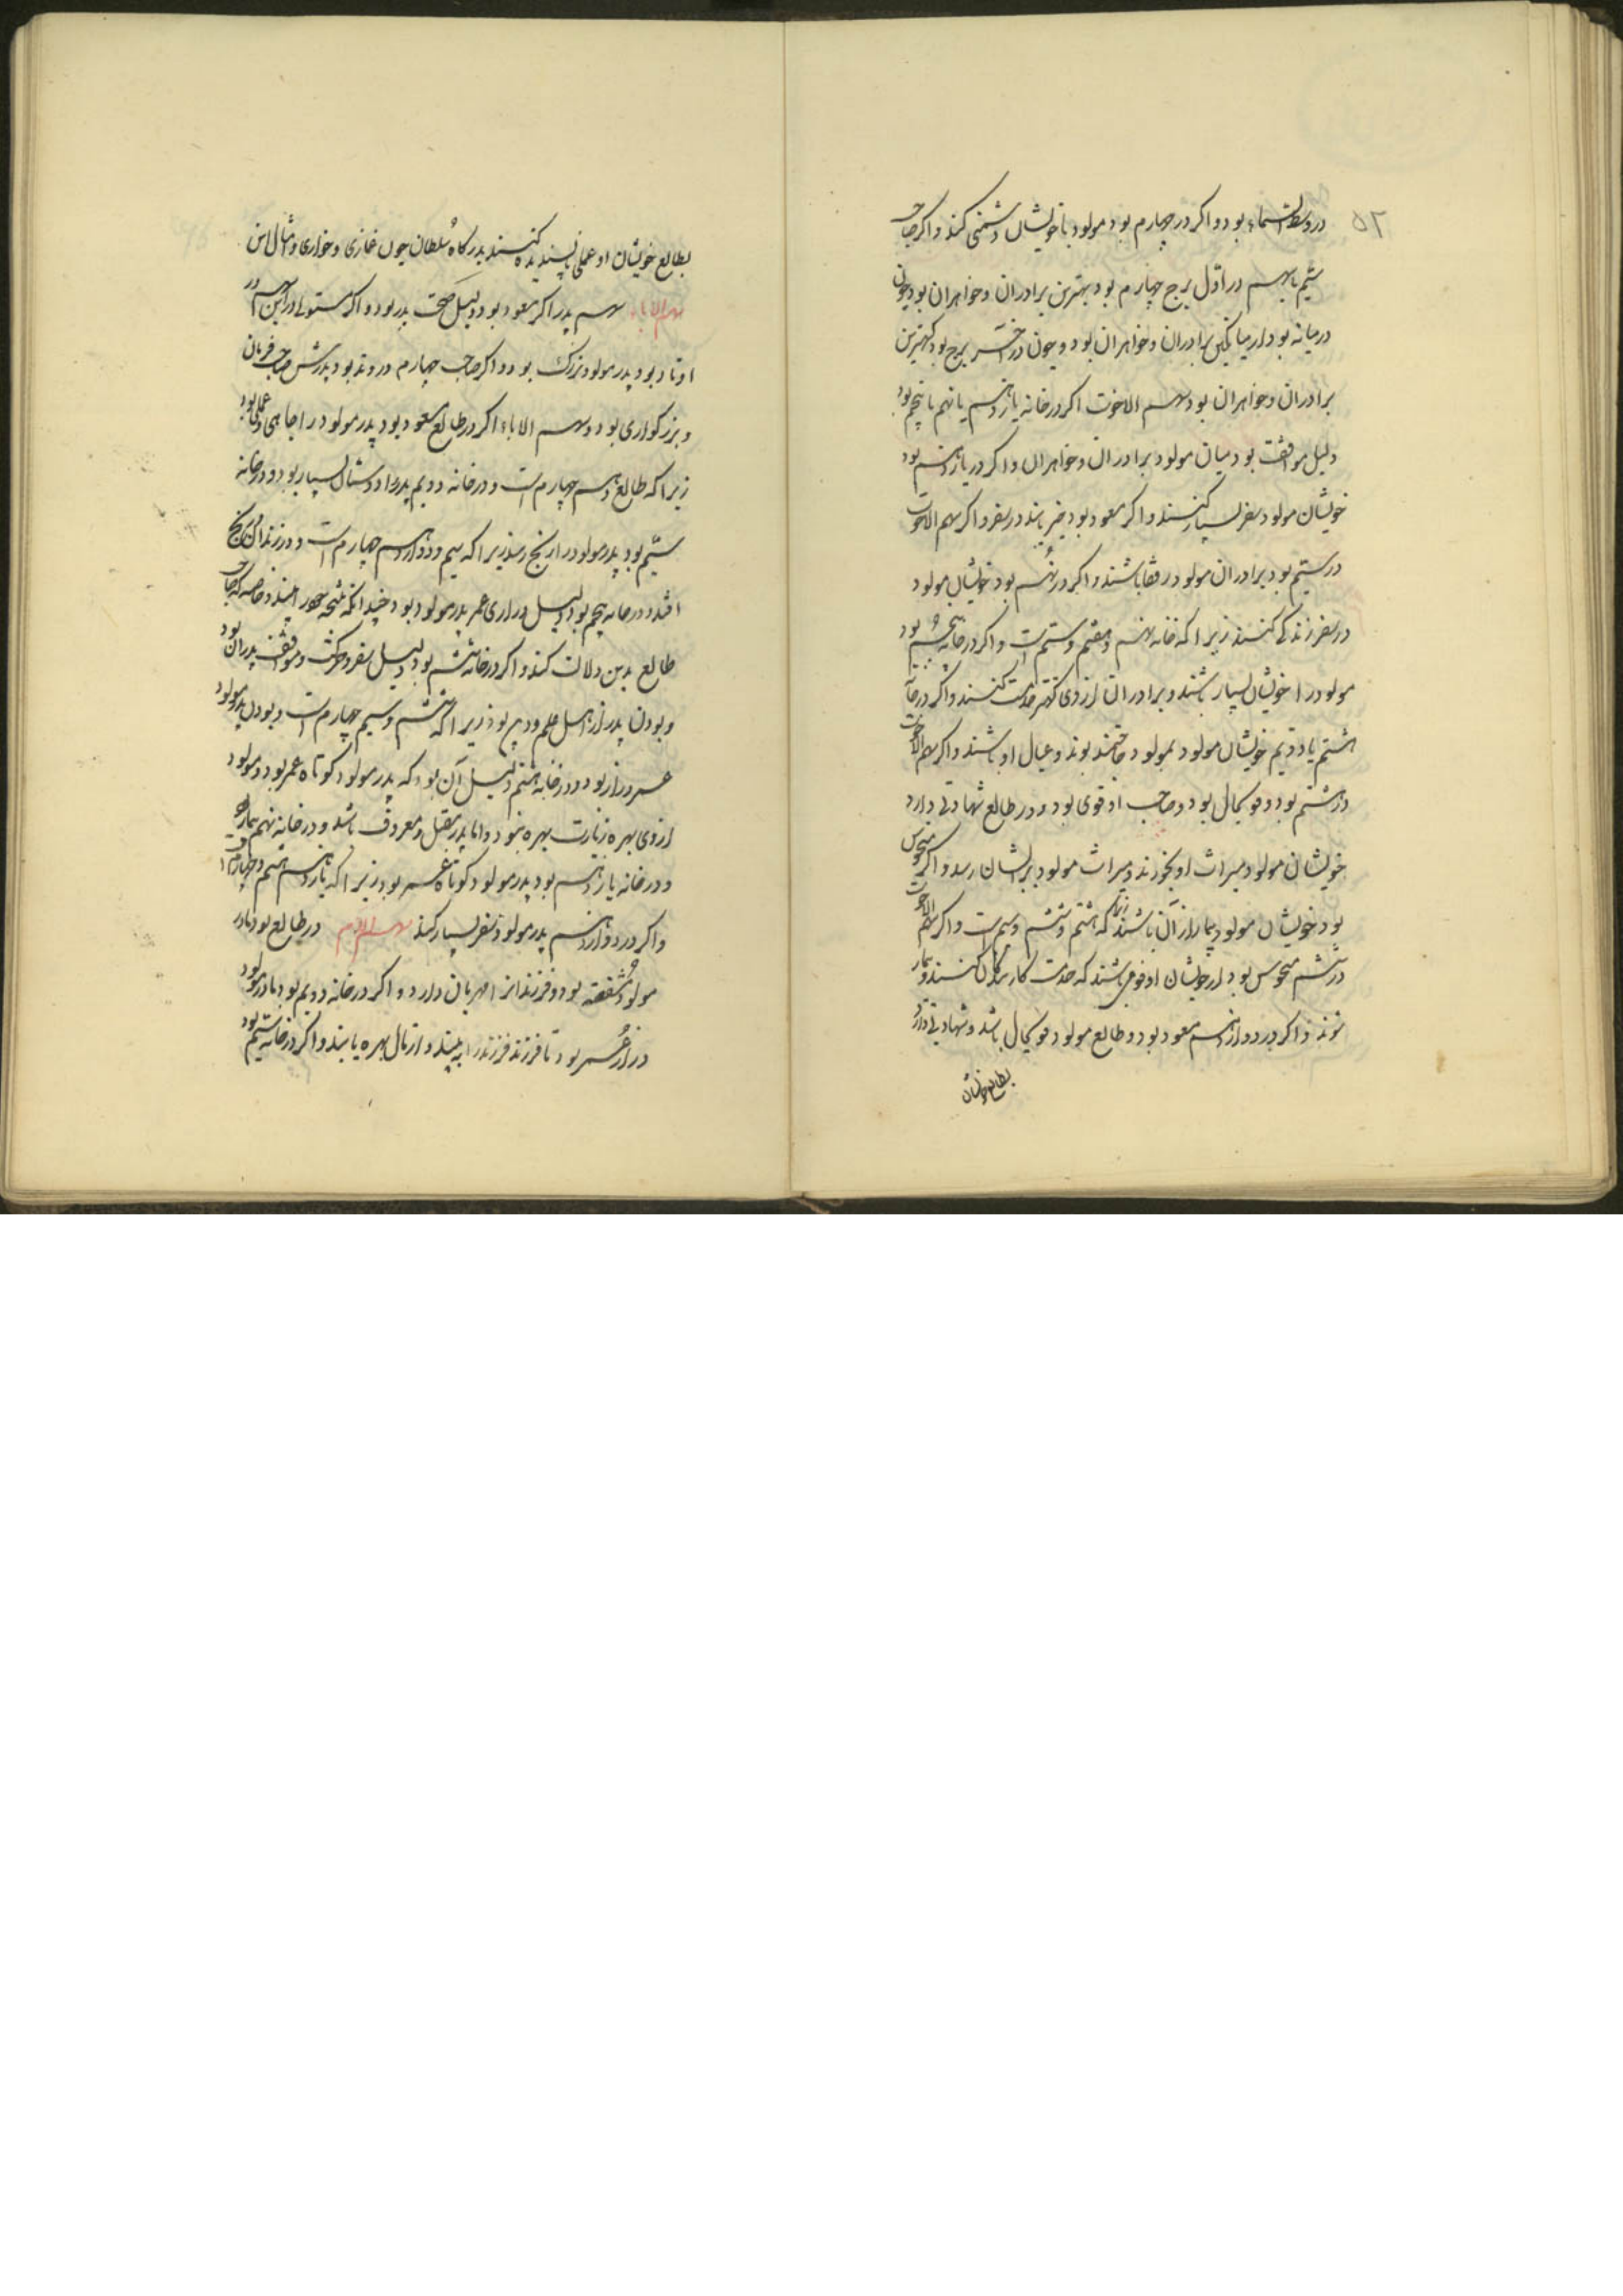 ۵۲
در وسط السماء بود و اکر در چهارم بود مولود با خویشان دشمنی کند و اکر صاحب
سیم با سهم در اول برج چهارم بود بهترین برادران و خواهران بود و چون
درمیانه بود از میانکین برادران و خواهران بود و چون در آخر برج بود کهترین
برادران و خواهران بود و سهم الاخوت اکر در خانه یازدهم یا نهم یا پنجم بود
دلیل موافقت بود میان مولود و برادران و خواهران و اکر در یازدهم بود
خویشان مولود سفر بسیار کنند و اکر مسعود بود خیر یابند در سفر و اکر سهم الاخوت
در سیم بود برادران مولود رفقا باشند و اکر در نهم بود خویشان مولود
در سفر زندکی کنند زیرا که خانه نهم هفتم سیم است و اکر در خانه پنجم بود
مولود را خویشان بسیار باشند و برادران از وی کهتر خدمت کنند و اکر در خانه
هشتم یا دویم خویشان مولود بمولود حاجتمند بوند و عیال او باشند و اکر سهم الاخوت
در هشتم بود و قوی حال بود و صاحب او قوی بود و در طالع شهادتی دارد
خویشان مولود میراث او بخورند و میراث مولود بدیشان رسد و اکر منحوس
بود خویشان مولود بیمار از آن باشند زیرا که هشتم ششم سیم است و اکر سهم الاخوت
در ششم منحوس بود از خویشان او قومی باشند که خدمت کاربزرکان کنند و بیمار
شوند و اکر در دوازدهم مسعود بود و طالع مولود قوی حال باشد و شهادتی دارد
بطالع خویشان
بطالع خویشان او عملی ناپسندیده کنند بدرکاه سلطان چون غمازی و خواری و امثال این
سهم الاباء سهم پدر اکر مسعود بود دلیل صحت پدر بود و اکر مستولی در این سهم در
اوتاد بود پدر مولود بزرک بود و اکر صاحب چهارم در وتد بود پدرش صاحب فرمان
و بزرکواری بود و سهم الاباء اکر در طالع مسعود بود پدر مولود را جاهی و عملی بود
زیرا که طالع دهم چهارم است و در خانه دویم پدر او دوستان بسیار بود و در خانه
سیم بود پدر مولود را رنج رسد زیرا که سیم دوازدهم چهارم است و در زندان و رنج
افتد و در خانه پنجم بود دلیل درازی عمر پدر مولود بود چندانکه نتیجه خود را بیند خاصه که صاحب
طالع بدین دلالت کند و اکر در خانه ششم بود دلیل سفر و حرکت و موافقت پدران بود
و بودن پدر از اهل علم و دین بود زیرا که ششم سیم چهارم است و بودن پدر مولود
عمر دراز بود و در خانه هشتم دلیل آن بود که پدر مولود کوتاه عمر بود و مولود
از وی بهره زیادت بهره نبود و اما پدر مقبل و معروف باشد و در خانه نهم بیماری
و در خانه یازدهم بود پدر مولود کوتاه عمر بود زیرا که یازدهم هشتم چهارم است
و اکر در دوازدهم پدر مولود سفر بسیار کند سهم الام در طالع بود مادر
مولود مشفقه بود و فرزندانرا مهربان دارد و اکر در خانه دویم بود مادر مولود
دراز عمر بود تا فرزند فرزند را ببیند و از مال بهره یابند و اکر در خانه سیم بود